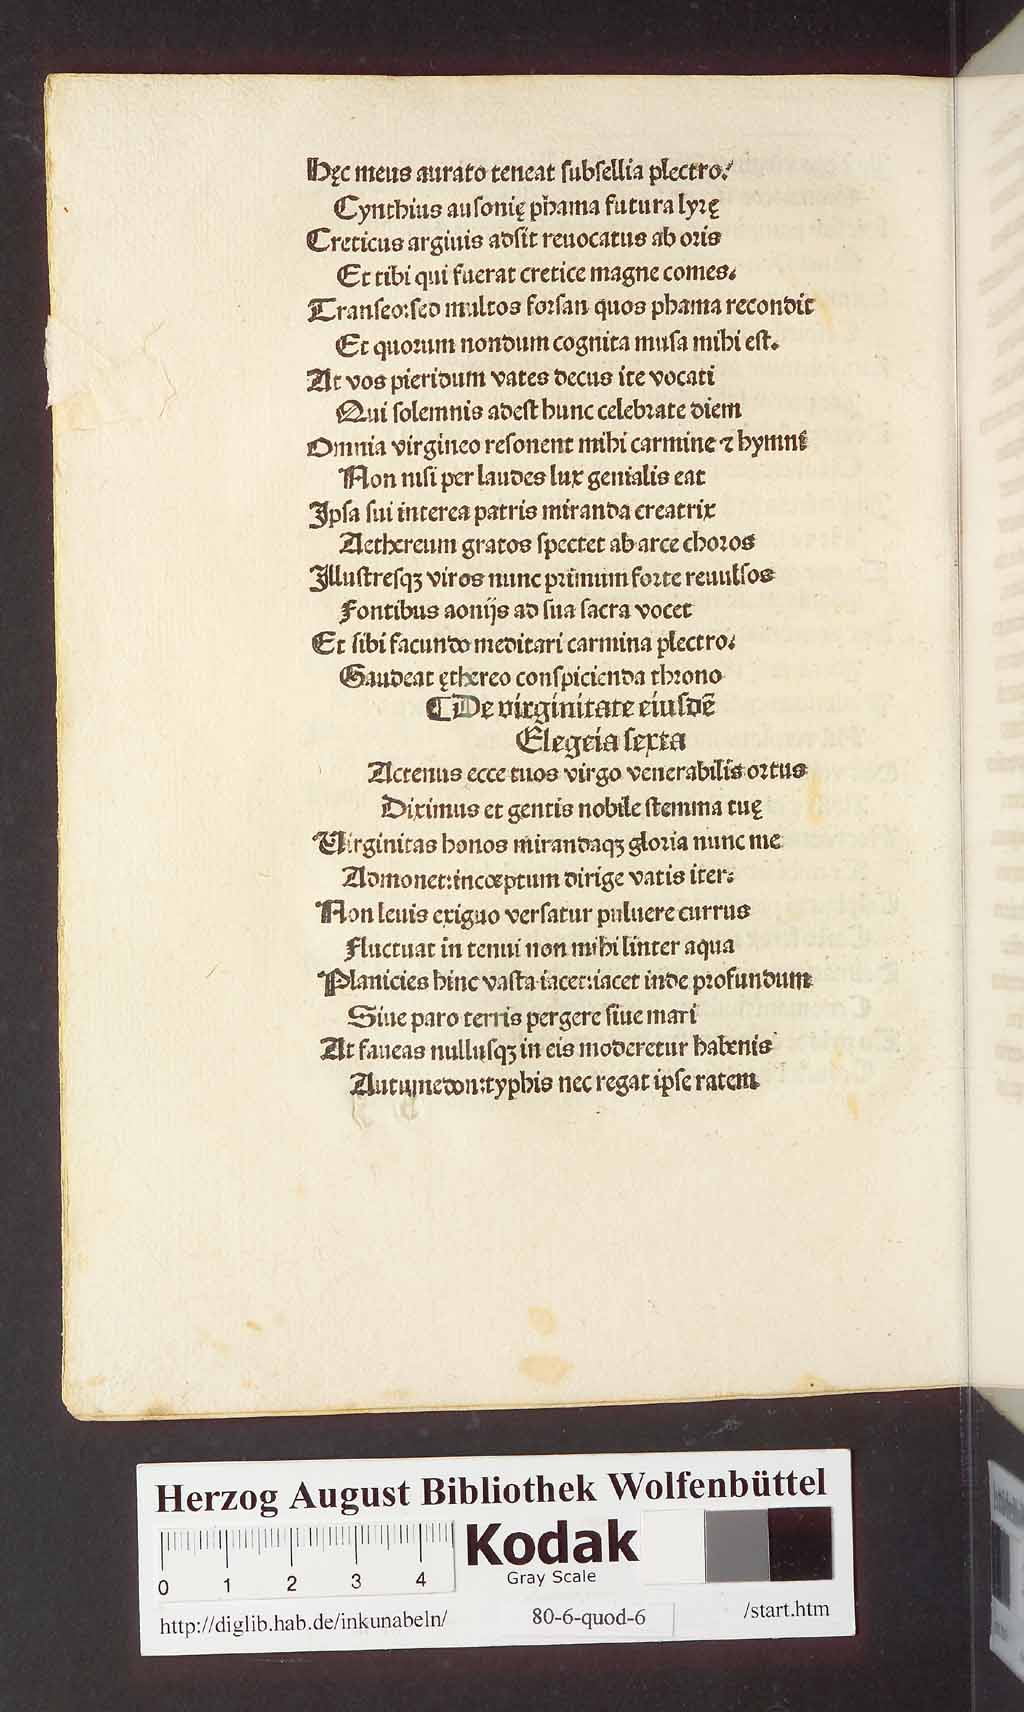 Hęc meus aurato teneat ſubſellia plectro:
Cynthius auſonię phama futura lyrę
Creticus argiuis adſit reuocatus ab oris
Et tibi qui fuerat cretice magne comes.
Tranſeo:ſed multos forſan quos phama recondit
Et quorum nondum cognita muſa mihi eſt.
At vos pieridum vates decus ite vocati
Qui ſolemnis adeſt hunc celebrate diem
Omnia virgineo reſonent mihi carmine ⁊ hymnẽ
Non niſi per laudes lux genialis eat
Ipſa ſui interea patris miranda creatrix
Aethereum gratos ſpectet ab arce choros
Illuſtreſqꝫ viros nunc primum forte reuulſos
Fontibus aonijs ad ſua ſacra vocet
Et ſibi facundo meditari carmina plectro.
Gaudeat ęthereo conſpicienda throno
⁋De virginitate eiuſdẽ
Elegeia ſexta
Actenus ecce tuos virgo venerabilis ortus
Diximus et gentis nobile ſtemma tuę
Virginitas honos mirandaqꝫ gloria nunc me
Admonet:incœptum dirige vatis iter:
Non leuis exiguo verſatur puluere currus
Fluctuat in tenui non mihi linter aqua
Planicies hinc vaſta iacet:iacet inde profundum
Siue paro terris pergere ſiue mari
At faueas nulluſqꝫ in eis moderetur habenis
Autumedon:typhis nec regat ipſe ratem
Herzog August Bibliothek Wolfenbüttel
Kodak
Gray Scale
0 1 2 3 4
http://diglib.hab.de/inkunabeln/ 80-6-quod-6 /start.htm